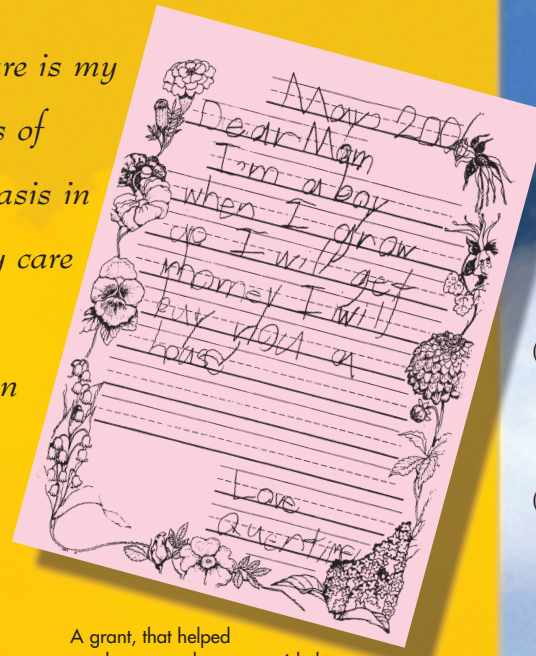 re is my
s of
asis in
y care
n
May 2001
Dear Mom
I'm a boy
when I grow
up I will get
money I will
buy you a
Love
A grant, that helped